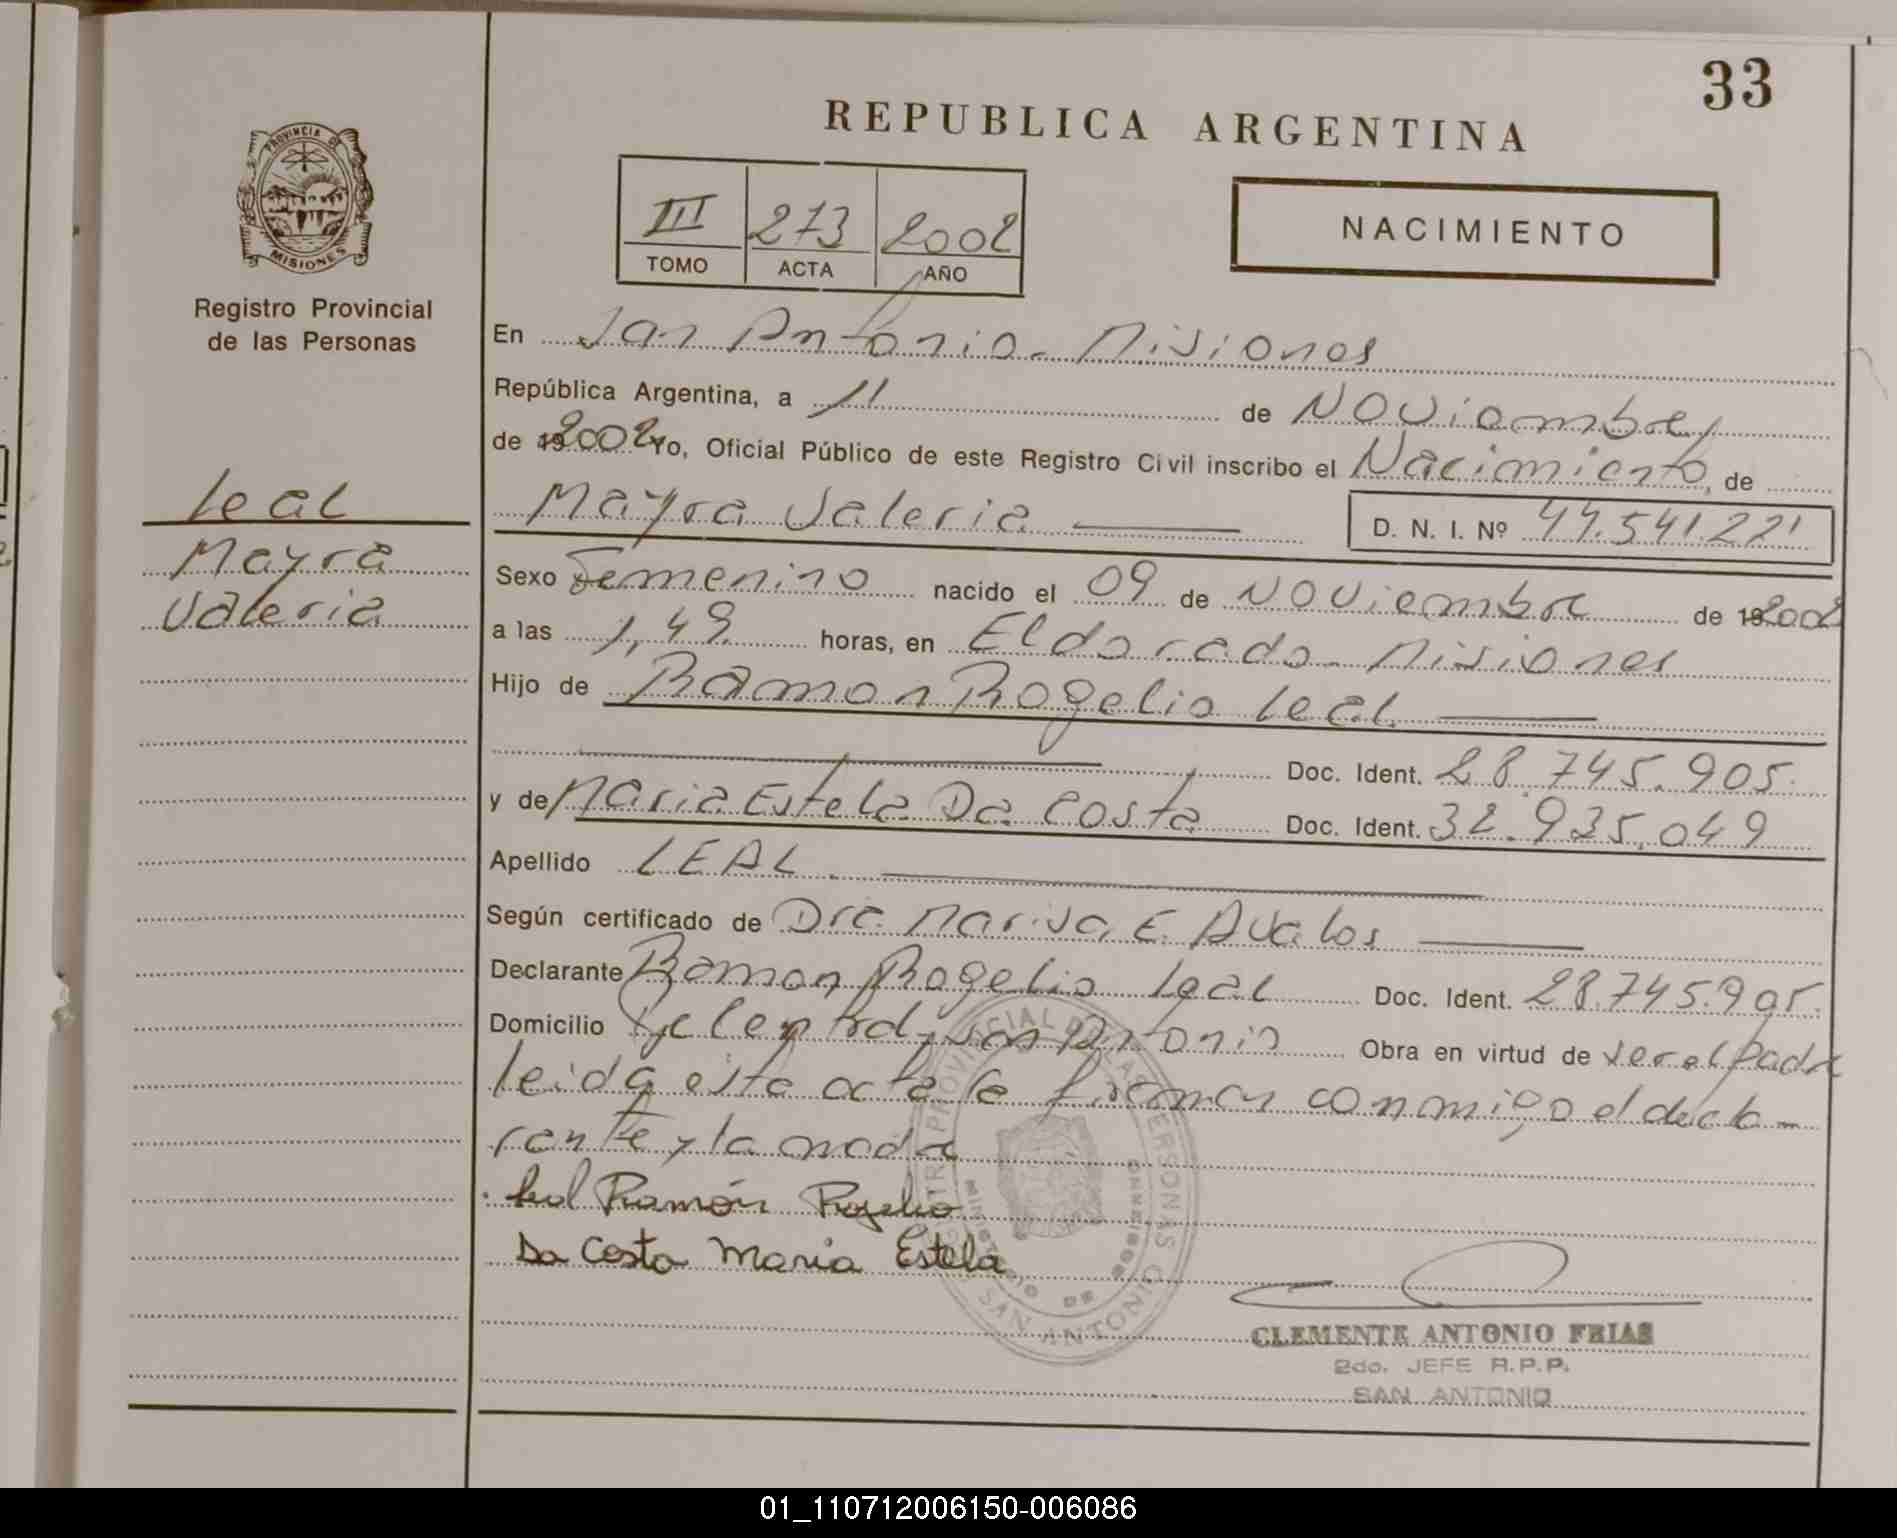 33
REPUBLICA ARGENTINA
III 273 2002
TOMO ACTA AÑO
NACIMIENTO
PROVINCIA DE
MISIONES
Registro Provincial
de las Personas
Leal
Mayra
Valeria
En San Antonio - Misiones
República Argentina, a 11 de Noviembre
de 19 2002 Yo, Oficial Público de este Registro Civil inscribo el Nacimiento, de
Mayra Valeria D. N. I. Nº 44.541.221
Sexo Femenino nacido el 09 de Noviembre de 19 2002
a las 1,49 horas, en Eldorado - Misiones
Hijo de Ramon Rogelio Leal
Doc. Ident. 28.745.905
y de Maria Estela Da Costa Doc. Ident. 32.935.049
Apellido LEAL
Según certificado de Dra. Marisa E. Avalos
Declarante Ramon Rogelio Leal Doc. Ident. 28.745.905
Domicilio San Antonio Obra en virtud de ser el Padre
leida esta acta la firman conmigo el decla-
rante y la madre
Leal Ramón Rogelio
Da Costa Maria Estela
REGISTRO PROVINCIAL DE LAS PERSONAS
MINISTERIO DE GOBIERNO
SAN ANTONIO
CLEMENTE ANTONIO FRIAS
2do. JEFE R.P.P.
SAN ANTONIO
01_110712006150-006086